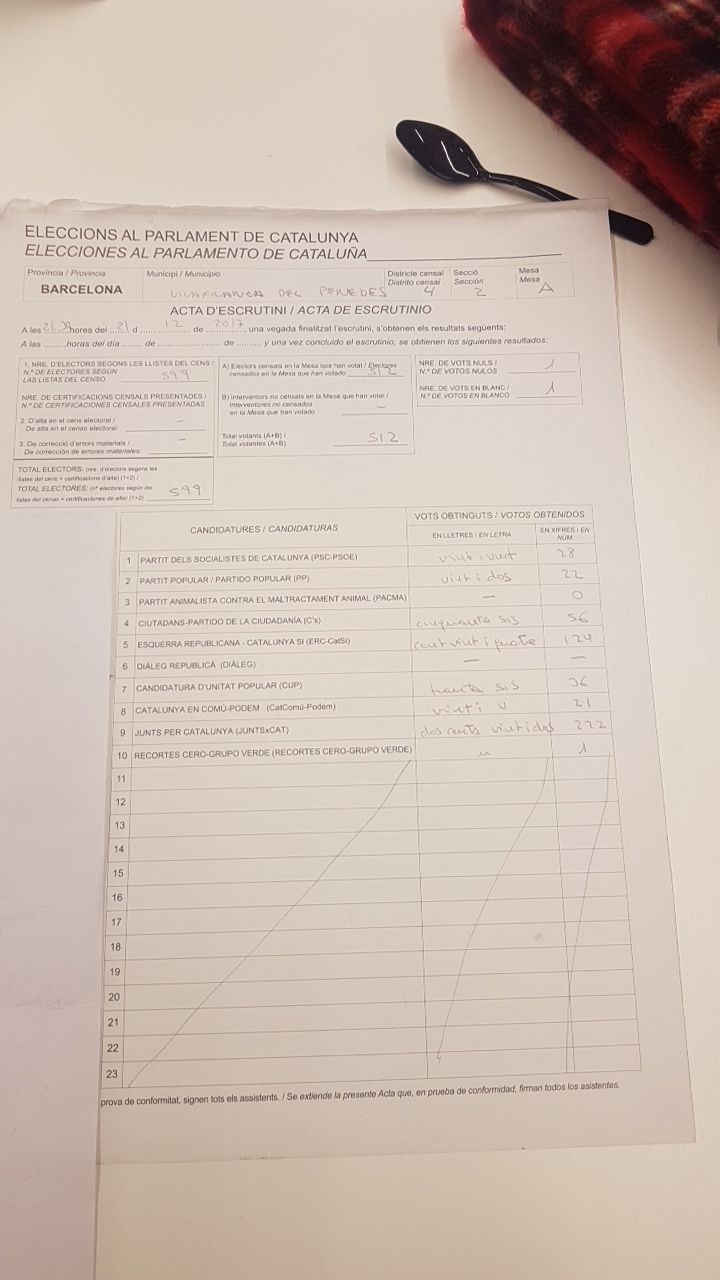 ELECCIONS AL PARLAMENT DE CATALUNYA
ELECCIONES AL PARLAMENTO DE CATALUÑA
Província / Provincia
BARCELONA
Municipi / Municipio
VILAFRANCA DEL PENEDES
Districte censal
Distrito censal
4
Secció
Sección
2
Mesa
Mesa
A
ACTA D'ESCRUTINI / ACTA DE ESCRUTINIO
A les hores del 21 d 12 de 2017, una vegada finalitzat l'escrutini, s'obtenen els resultats següents:
A las ........horas del día ........ de .................... de ........, y una vez concluido el escrutinio, se obtienen los siguientes resultados:
1. NRE. D'ELECTORS SEGONS LES LLISTES DEL CENS /
N.º DE ELECTORES SEGÚN
LAS LISTAS DEL CENSO 599
NRE. DE CERTIFICACIONS CENSALS PRESENTADES /
N.º DE CERTIFICACIONES CENSALES PRESENTADAS
2. D'alta en el cens electoral / –
De alta en el censo electoral:
3. De correcció d'errors materials / –
De corrección de errores materiales:
TOTAL ELECTORS: (nre. d'electors segons les
llistes del cens + certificacions d'alta) (1+2) /
TOTAL ELECTORES: (nº electores según las
listas del censo + certificaciones de alta) (1+2) 599
A) Electors censats en la Mesa que han votat / Electores
censados en la Mesa que han votado 512
B) Interventors no censats en la Mesa que han votat /
Interventores no censados
en la Mesa que han votado –
Total votants (A+B) /
Total votantes (A+B) 512
NRE. DE VOTS NULS / 1
N.º DE VOTOS NULOS
NRE. DE VOTS EN BLANC / 1
N.º DE VOTOS EN BLANCO
CANDIDATURES / CANDIDATURAS
VOTS OBTINGUTS / VOTOS OBTENIDOS
EN LLETRES / EN LETRA
EN XIFRES / EN NÚM.
1 PARTIT DELS SOCIALISTES DE CATALUNYA (PSC-PSOE) vint i vuit 28
2 PARTIT POPULAR / PARTIDO POPULAR (PP) vint i dos 22
3 PARTIT ANIMALISTA CONTRA EL MALTRACTAMENT ANIMAL (PACMA) – 0
4 CIUTADANS-PARTIDO DE LA CIUDADANÍA (C's) cinquanta sis 56
5 ESQUERRA REPUBLICANA - CATALUNYA SÍ (ERC-CatSí) cent vint i quatre 124
6 DIÀLEG REPUBLICÀ (DIÀLEG) – –
7 CANDIDATURA D'UNITAT POPULAR (CUP) trenta sis 36
8 CATALUNYA EN COMÚ-PODEM (CatComú-Podem) vint i u 21
9 JUNTS PER CATALUNYA (JUNTSxCAT) dos cents vint i dos 222
10 RECORTES CERO-GRUPO VERDE (RECORTES CERO-GRUPO VERDE) u 1
11
12
13
14
15
16
17
18
19
20
21
22
23
prova de conformitat, signen tots els assistents. / Se extiende la presente Acta que, en prueba de conformidad, firman todos los asistentes.